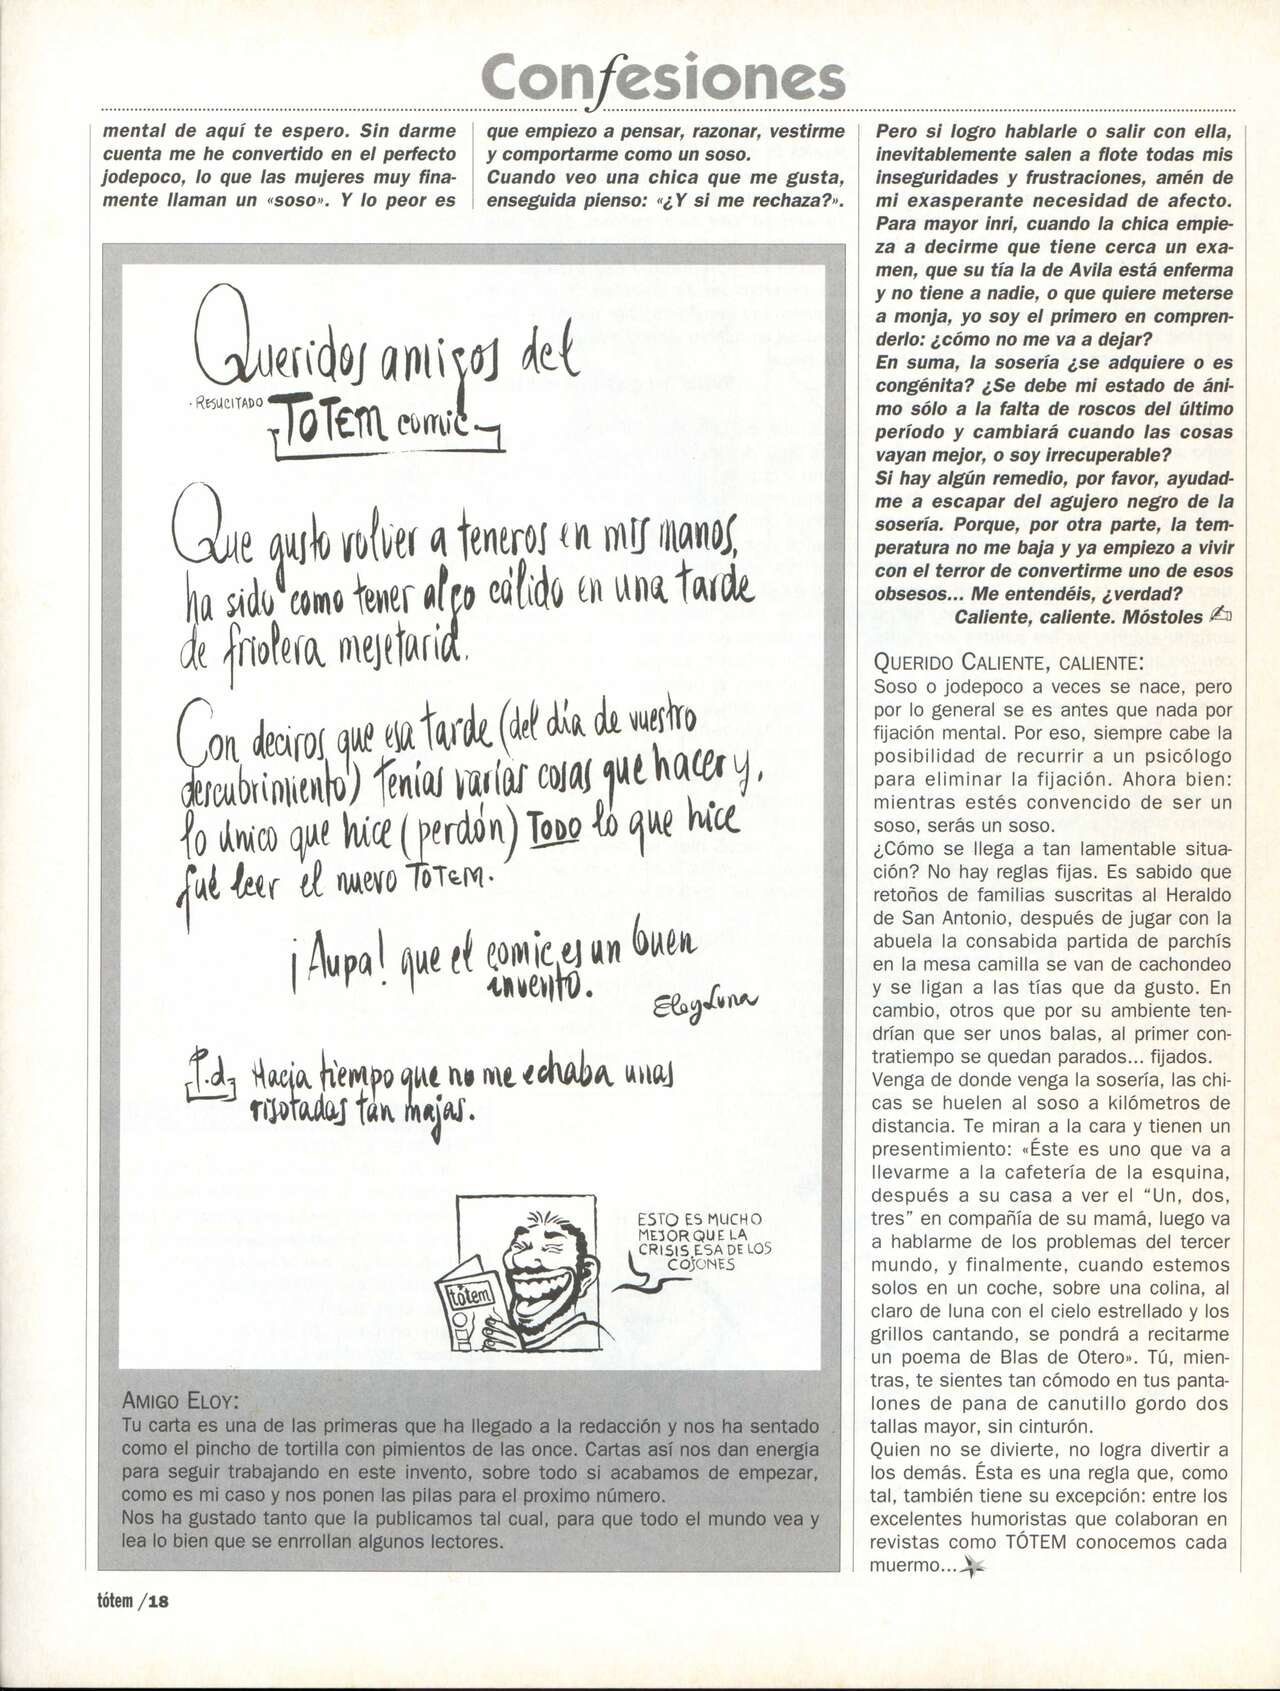 Confesiones
mental de aquí te espero. Sin darme
cuenta me he convertido en el perfecto
jodepoco, lo que las mujeres muy fina-
mente llaman un «soso». Y lo peor es
que empiezo a pensar, razonar, vestirme
y comportarme como un soso.
Cuando veo una chica que me gusta,
enseguida pienso: «¿Y si me rechaza?».
Pero si logro hablarle o salir con ella,
inevitablemente salen a flote todas mis
inseguridades y frustraciones, amén de
mi exasperante necesidad de afecto.
Para mayor inri, cuando la chica empie-
za a decirme que tiene cerca un exa-
men, que su tía la de Avila está enferma
y no tiene a nadie, o que quiere meterse
a monja, yo soy el primero en compren-
derlo: ¿cómo no me va a dejar?
En suma, la sosería ¿se adquiere o es
congénita? ¿Se debe mi estado de áni-
mo sólo a la falta de roscos del último
período y cambiará cuando las cosas
vayan mejor, o soy irrecuperable?
Si hay algún remedio, por favor, ayudad-
me a escapar del agujero negro de la
sosería. Porque, por otra parte, la tem-
peratura no me baja y ya empiezo a vivir
con el terror de convertirme uno de esos
obsesos... Me entendéis, ¿verdad?
Caliente, caliente. Móstoles
QUERIDO CALIENTE, CALIENTE:
Soso o jodepoco a veces se nace, pero
por lo general se es antes que nada por
fijación mental. Por eso, siempre cabe la
posibilidad de recurrir a un psicólogo
para eliminar la fijación. Ahora bien:
mientras estés convencido de ser un
soso, serás un soso.
¿Cómo se llega a tan lamentable situa-
ción? No hay reglas fijas. Es sabido que
retoños de familias suscritas al Heraldo
de San Antonio, después de jugar con la
abuela la consabida partida de parchís
en la mesa camilla se van de cachondeo
y se ligan a las tías que da gusto. En
cambio, otros que por su ambiente ten-
drían que ser unos balas, al primer con-
tratiempo se quedan parados... fijados.
Venga de donde venga la sosería, las chi-
cas se huelen al soso a kilómetros de
distancia. Te miran a la cara y tienen un
presentimiento: «Éste es uno que va a
llevarme a la cafetería de la esquina,
después a su casa a ver el "Un, dos,
tres" en compañía de su mamá, luego va
a hablarme de los problemas del tercer
mundo, y finalmente, cuando estemos
solos en un coche, sobre una colina, al
claro de luna con el cielo estrellado y los
grillos cantando, se pondrá a recitarme
un poema de Blas de Otero». Tú, mien-
tras, te sientes tan cómodo en tus panta-
lones de pana de canutillo gordo dos
tallas mayor, sin cinturón.
Quien no se divierte, no logra divertir a
los demás. Ésta es una regla que, como
tal, también tiene su excepción: entre los
excelentes humoristas que colaboran en
revistas como TÓTEM conocemos cada
muermo...
Queridos amigos del
· RESUCITADO TOTEM comic
Que gusto volver a teneros en mis manos,
ha sido como tener algo cálido en una tarde
de friolera mesetaria.
Con deciros que esa tarde (del día de vuestro
descubrimiento) tenías varias cosas que hacer y,
lo único que hice (perdón) TODO lo que hice
fué leer el nuevo TOTEM.
¡Aupa! que el comic es un buen
invento.
Eloy Luna
P.d. Hacia tiempo que no me echaba unas
risotadas tan majas.
tótem
ESTO ES MUCHO
MEJOR QUE LA
CRISIS, ESA DE LOS
COJONES
AMIGO ELOY:
Tu carta es una de las primeras que ha llegado a la redacción y nos ha sentado
como el pincho de tortilla con pimientos de las once. Cartas así nos dan energía
para seguir trabajando en este invento, sobre todo si acabamos de empezar,
como es mi caso y nos ponen las pilas para el proximo número.
Nos ha gustado tanto que la publicamos tal cual, para que todo el mundo vea y
lea lo bien que se enrrollan algunos lectores.
tótem /18